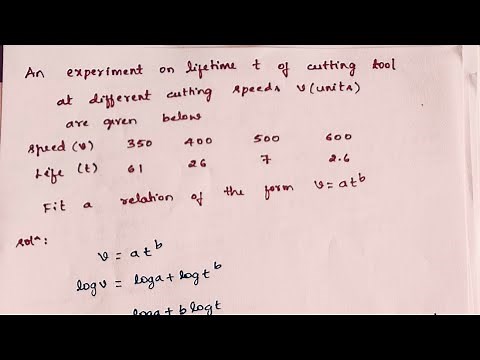 An experiment on lifetime t of cutting tool
at different cutting speeds v (units)
are given below
speed (v) 350 400 500 600
Life (t) 61 26 7 2.6
Fit a relation of the form v = at^b
solⁿ:
v = at^b
log v = log a + log t^b
log a + b log t